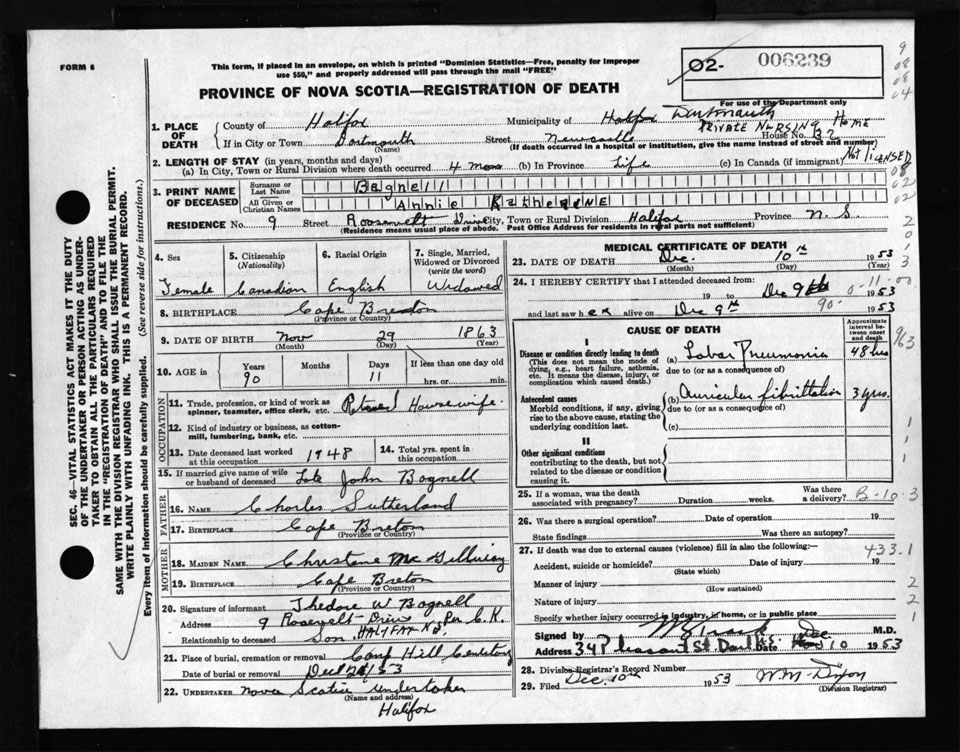 FORM 6
This form, if placed in an envelope, on which is printed "Dominion Statistics—Free, penalty for improper
use $50," and properly addressed will pass through the mail "FREE"
O2- 006239
For use of the Department only
PROVINCE OF NOVA SCOTIA—REGISTRATION OF DEATH
1. PLACE OF DEATH
County of Halifax Municipality of Halifax Dartmouth
PRIVATE NURSING HOME
If in City or Town Dartmouth (Name) Street Newcastle House No. B2
(If death occurred in a hospital or institution, give the name instead of street and number)
Not licensed
2. LENGTH OF STAY (in years, months and days)
(a) In City, Town or Rural Division where death occurred 4 mos (b) In Province Life (c) In Canada (if immigrant)
3. PRINT NAME OF DECEASED
Surname or Last Name Bagnell
All Given or Christian Names Annie Katherine
RESIDENCE No. 9 Street Roosevelt Drive City, Town or Rural Division Halifax Province N.S.
(Residence means usual place of abode. Post Office Address for residents in rural parts not sufficient)
4. Sex Female
5. Citizenship (Nationality) Canadian
6. Racial Origin English
7. Single, Married, Widowed or Divorced (write the word) Widowed
8. BIRTHPLACE Cape Breton
(Province or Country)
9. DATE OF BIRTH Nov 29 1863
(Month) (Day) (Year)
10. AGE in Years 90 Months Days 11 If less than one day hrs. or min.
OCCUPATION
11. Trade, profession, or kind of work as spinner, teamster, office clerk, etc. Retired Housewife
12. Kind of industry or business, as cotton-mill, lumbering, bank, etc.
13. Date deceased last worked at this occupation 1948
14. Total yrs. spent in this occupation
15. If married give name of wife or husband of deceased Late John Bagnell
FATHER
16. NAME Charles Sutherland
17. BIRTHPLACE Cape Breton
(Province or Country)
MOTHER
18. MAIDEN NAME Christene
19. BIRTHPLACE Cape Breton
(Province or Country)
20. Signature of informant Thedore W Bagnell
Address 9 Roosevelt Drive Per C.K.
Relationship to deceased Son HALIFAX N.S.
21. Place of burial, cremation or removal Camp Hill Cemetery
Date of burial or removal
22. UNDERTAKER Nova Scotia Undertaker
(Name and address)
Halifax
MEDICAL CERTIFICATE OF DEATH
23. DATE OF DEATH Dec. 10th 1953
(Month) (Day) (Year)
24. I HEREBY CERTIFY that I attended deceased from:
19 to Dec 9th 1953
and last saw her alive on Dec 9th 1953
0-11
90-
CAUSE OF DEATH
Approximate interval between onset and death
I
Disease or condition directly leading to death
(This does not mean the mode of dying, e.g., heart failure, asthenia, etc. It means the disease, injury, or complication which caused death.)
(a) Lobar Pneumonia 48 hrs
due to (or as a consequence of)
Antecedent causes
Morbid conditions, if any, giving rise to the above cause, stating the underlying condition last.
(b) Auricular fibrillation 3 yrs.
due to (or as a consequence of)
(c)
II
Other significant conditions
contributing to the death, but not related to the disease or condition causing it.
25. If a woman, was the death associated with pregnancy? Duration weeks. Was there a delivery?
B-10-3
26. Was there a surgical operation? Date of operation 19
State findings Was there an autopsy?
27. If death was due to external causes (violence) fill in also the following:—
433.1
Accident, suicide or homicide? (State which) Date of injury 19
Manner of injury (How sustained)
Nature of injury
Specify whether injury occurred in industry, in home, or in public place
Signed by M.D.
Address 34 Pleasant St. Dart N.S. Date Dec 10 1953
28. Division Registrar's Record Number
29. Filed Dec. 10th 1953 W.M. Dixon
(Division Registrar)
SEC. 46—VITAL STATISTICS ACT MAKES IT THE DUTY
OF THE UNDERTAKER OR PERSON ACTING AS UNDER-
TAKER TO OBTAIN ALL THE PARTICULARS REQUIRED
IN THE "REGISTRATION OF DEATH" AND TO FILE THE
SAME WITH THE DIVISION REGISTRAR WHO SHALL ISSUE THE BURIAL PERMIT.
WRITE PLAINLY WITH UNFADING INK. THIS IS A PERMANENT RECORD.
Every item of information should be carefully supplied. (See reverse side for instructions.)